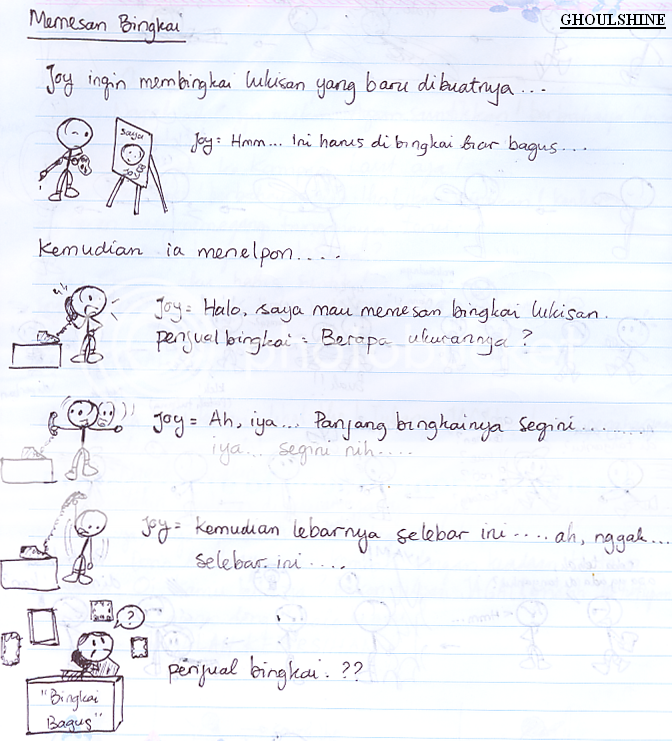 Memesan Bingkai
GHOULSHINE
Joy ingin membingkai lukisan yang baru dibuatnya...
saya
Joy
Joy = Hmm... Ini harus dibingkai biar bagus...
Kemudian ia menelpon....
Joy = Halo, saya mau memesan bingkai lukisan.
penjual bingkai = Berapa ukurannya ?
Joy = Ah, iya... Panjang bingkainya segini........
iya... segini nih....
Joy = Kemudian lebarnya selebar ini.... ah, nggak...
selebar ini....
?
penjual bingkai. ??
"Bingkai
Bagus"